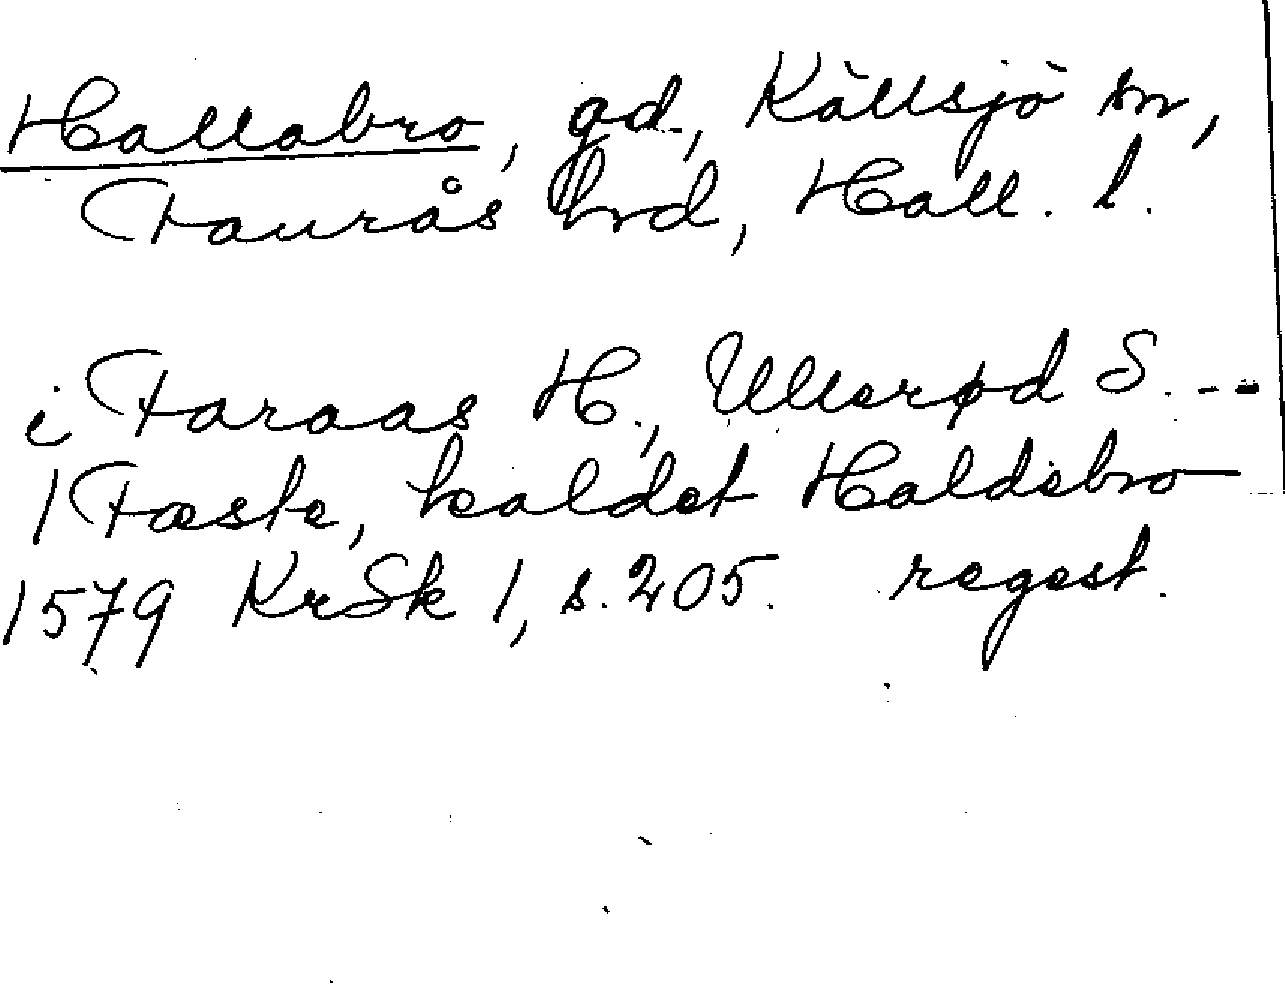 Hallabro, gd., Källsjö sn,
Faurås hrd, Hall. l.
i Faraas H., Ullerød S. ---
1 Fæste, kaldet Haldebro
1579 KrSk 1, s. 205. regest.